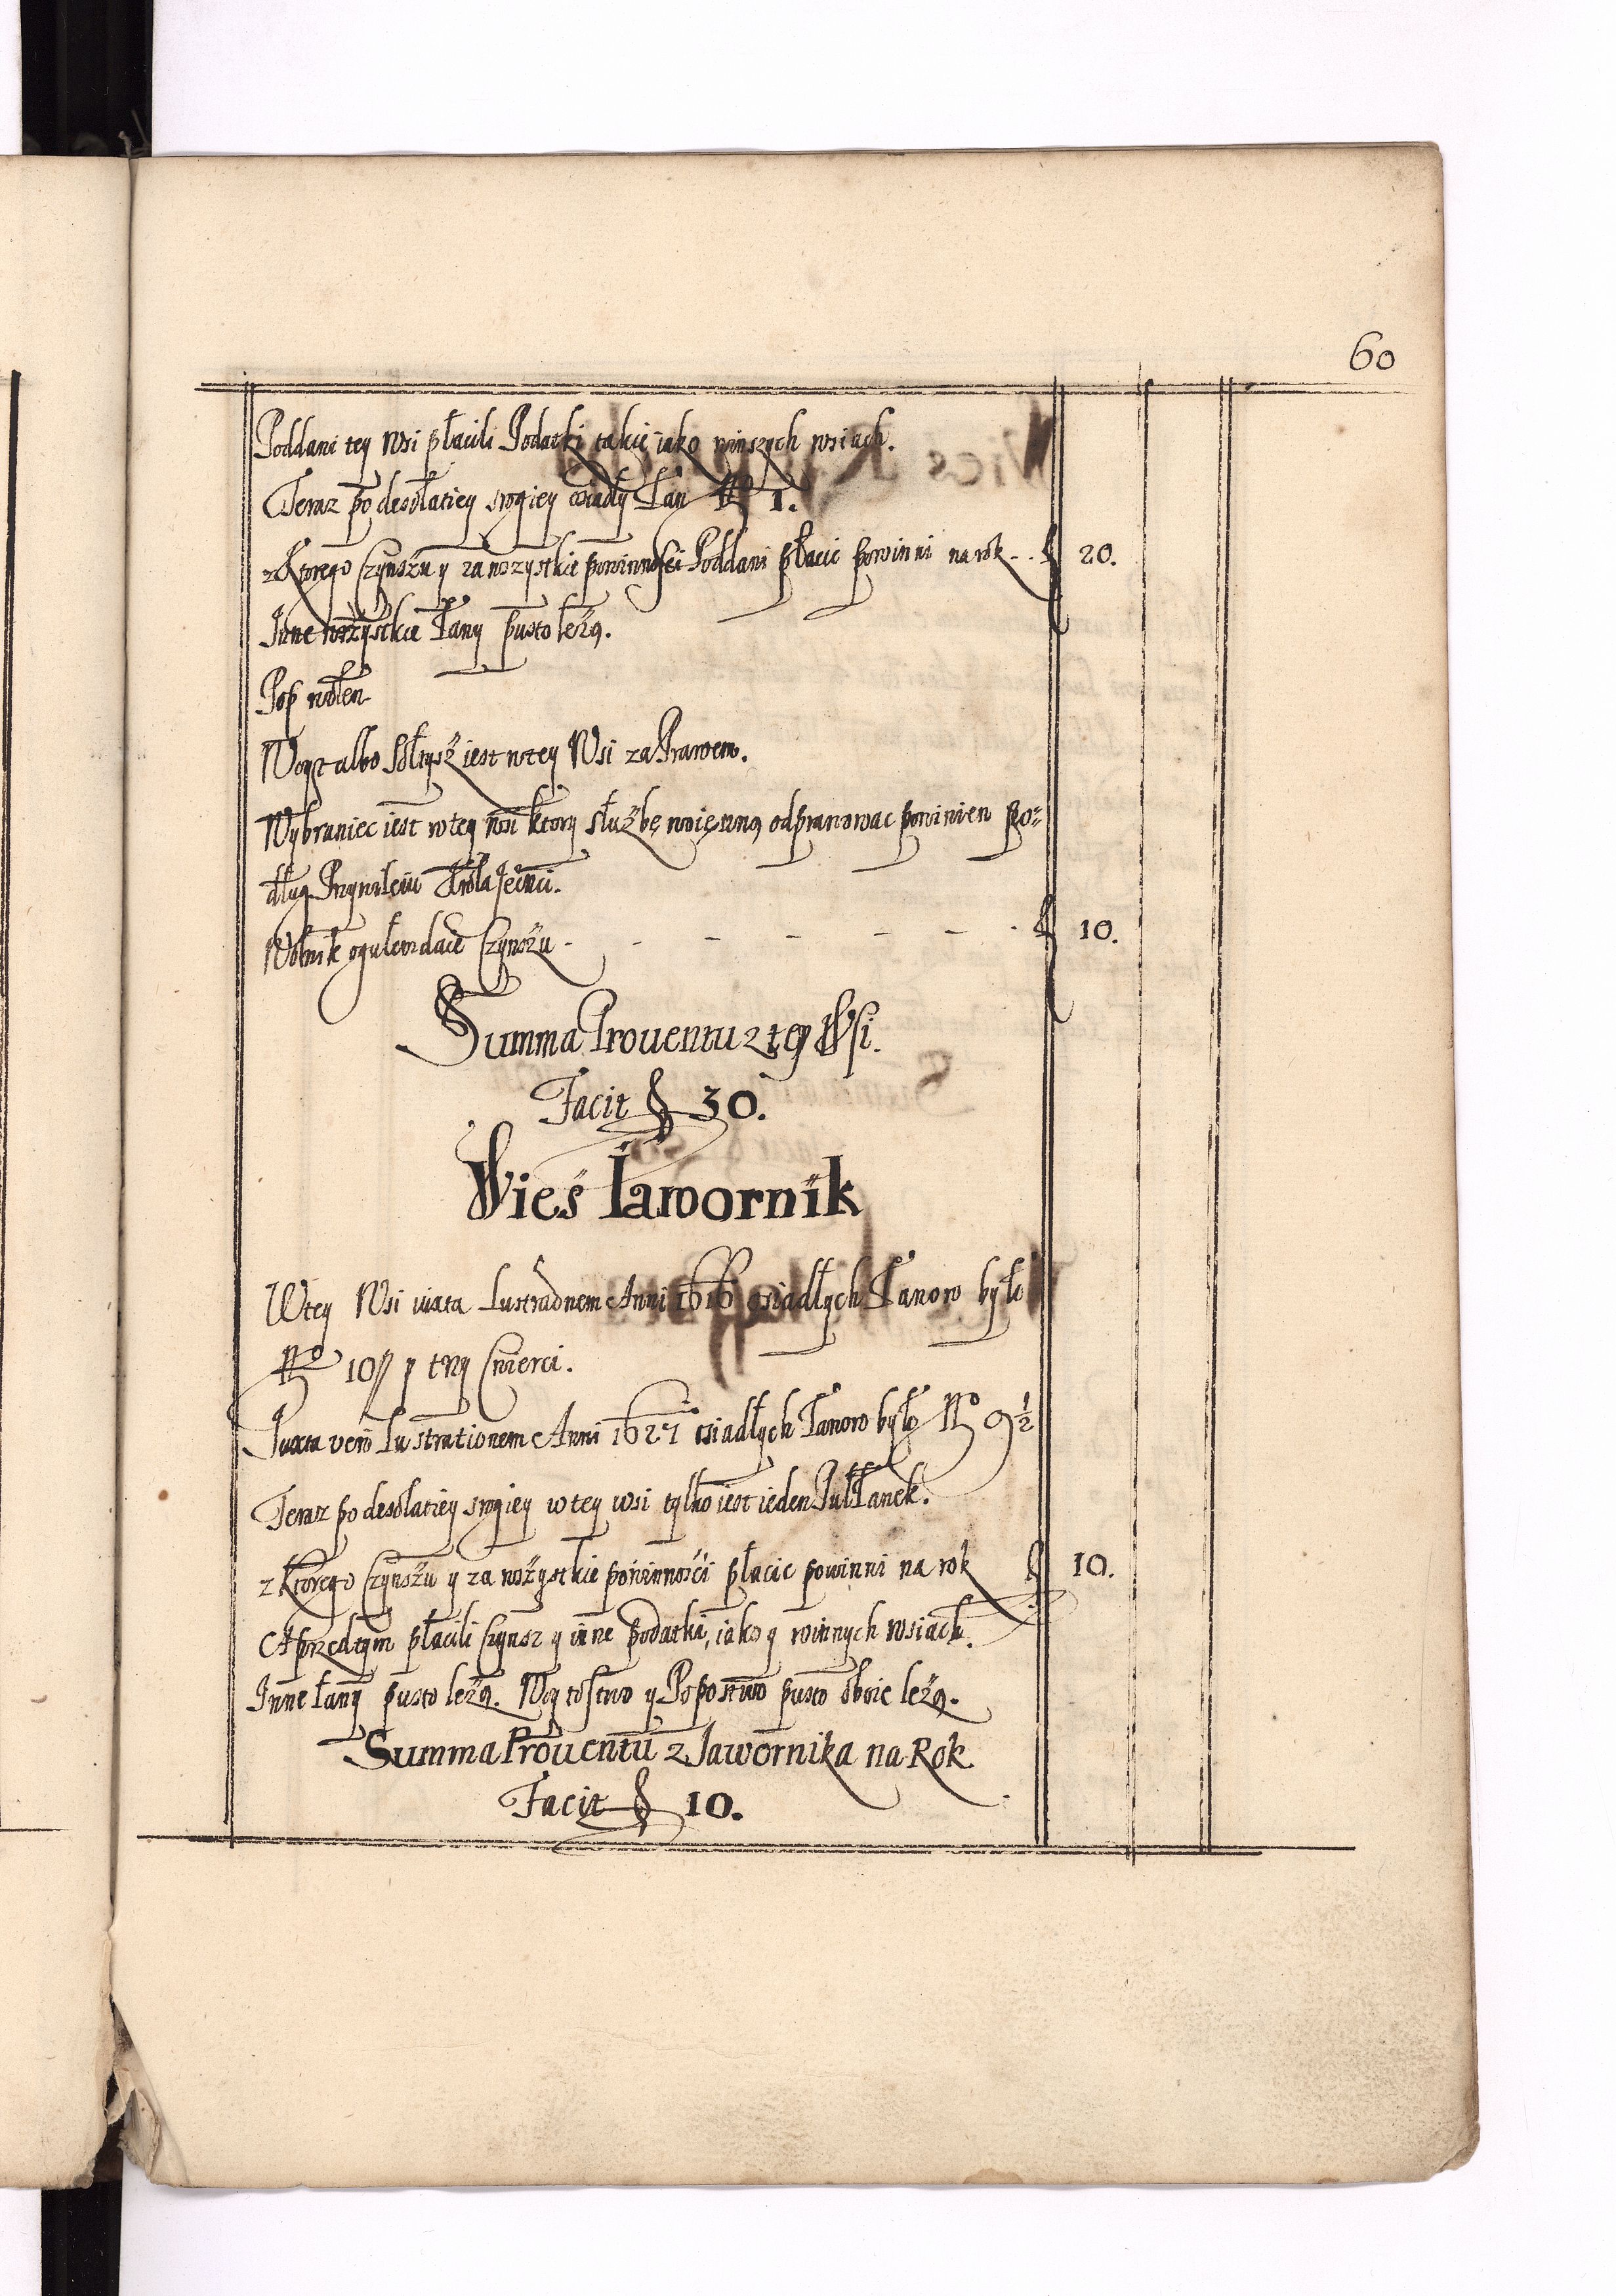 60
Poddani tey Wsi płacili Podatki takie iako winszych wsiach.
Teraz po desolatiey srogiey osiadły Łan Nº 1.
z Ktorego Czynszu y za wszystkie powinności Poddani płacic powinni na rok - - f 20.
Inne wszystkie Łany pusto leżą.
Pop wolen
Woyt albo Sołtysz iest wtey Wsi za Prawem.
Wybraniec iest wtey wsi ktory służbę woięnną odprawowac powinien Po=
dług Przywileiu Krola Je
Wolnik ogułem daie Czynszu - - - - - - - f 10.
Summa Prouentu z tey Wsi.
Facit f 30.
Wieś Iawornik
Wtey Wsi iuxta Lustraonem Anni 1616 osiadłych Łanow było
Nº 10 y trzy Cwierci.
Juxta vero Lustrationem Anni 1627 osiadłych Łanow było Nº 9 1/2
Teraz po desolatiey srogiey wtey wsi tylko iest ieden Puł Łanek.
z Ktorego Czynszu y za wszystkie powinności płacic powinni na rok f 10.
A przedtym płacili Czynsz y inne podatki, iako y winnych wsiach.
Inne łany pusto leżą. Woytostwo y Popostwo pusto oboie leżą.
Summa Prouentu z Jawornika na Rok
Facit f 10.